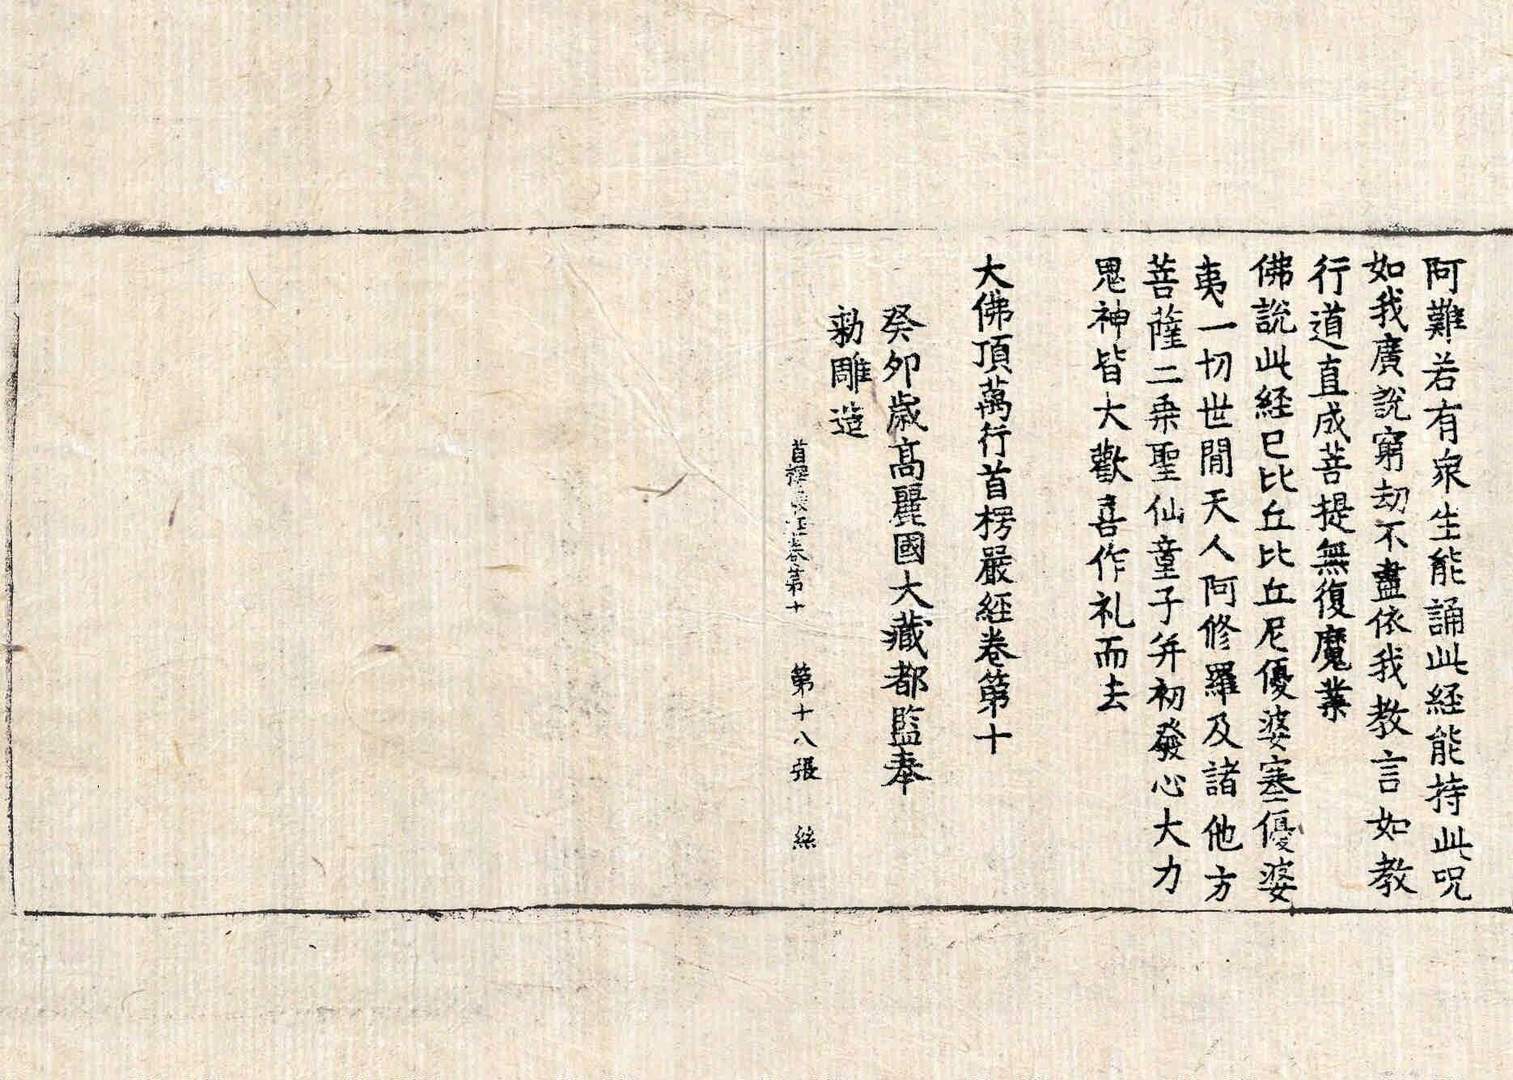 阿難若有衆生能誦此經能持此呪
如我廣說窮劫不盡依我教言如教
行道直成菩提無復魔業
佛說此經已比丘比丘尼優婆塞優婆
夷一切世間天人阿修羅及諸他方
菩薩二乘聖仙童子并初發心大力
鬼神皆大歡喜作礼而去
大佛頂萬行首楞嚴經卷第十
癸卯歲高麗國大藏都監奉
勅雕造
首楞嚴經卷第十 第十八張 絲